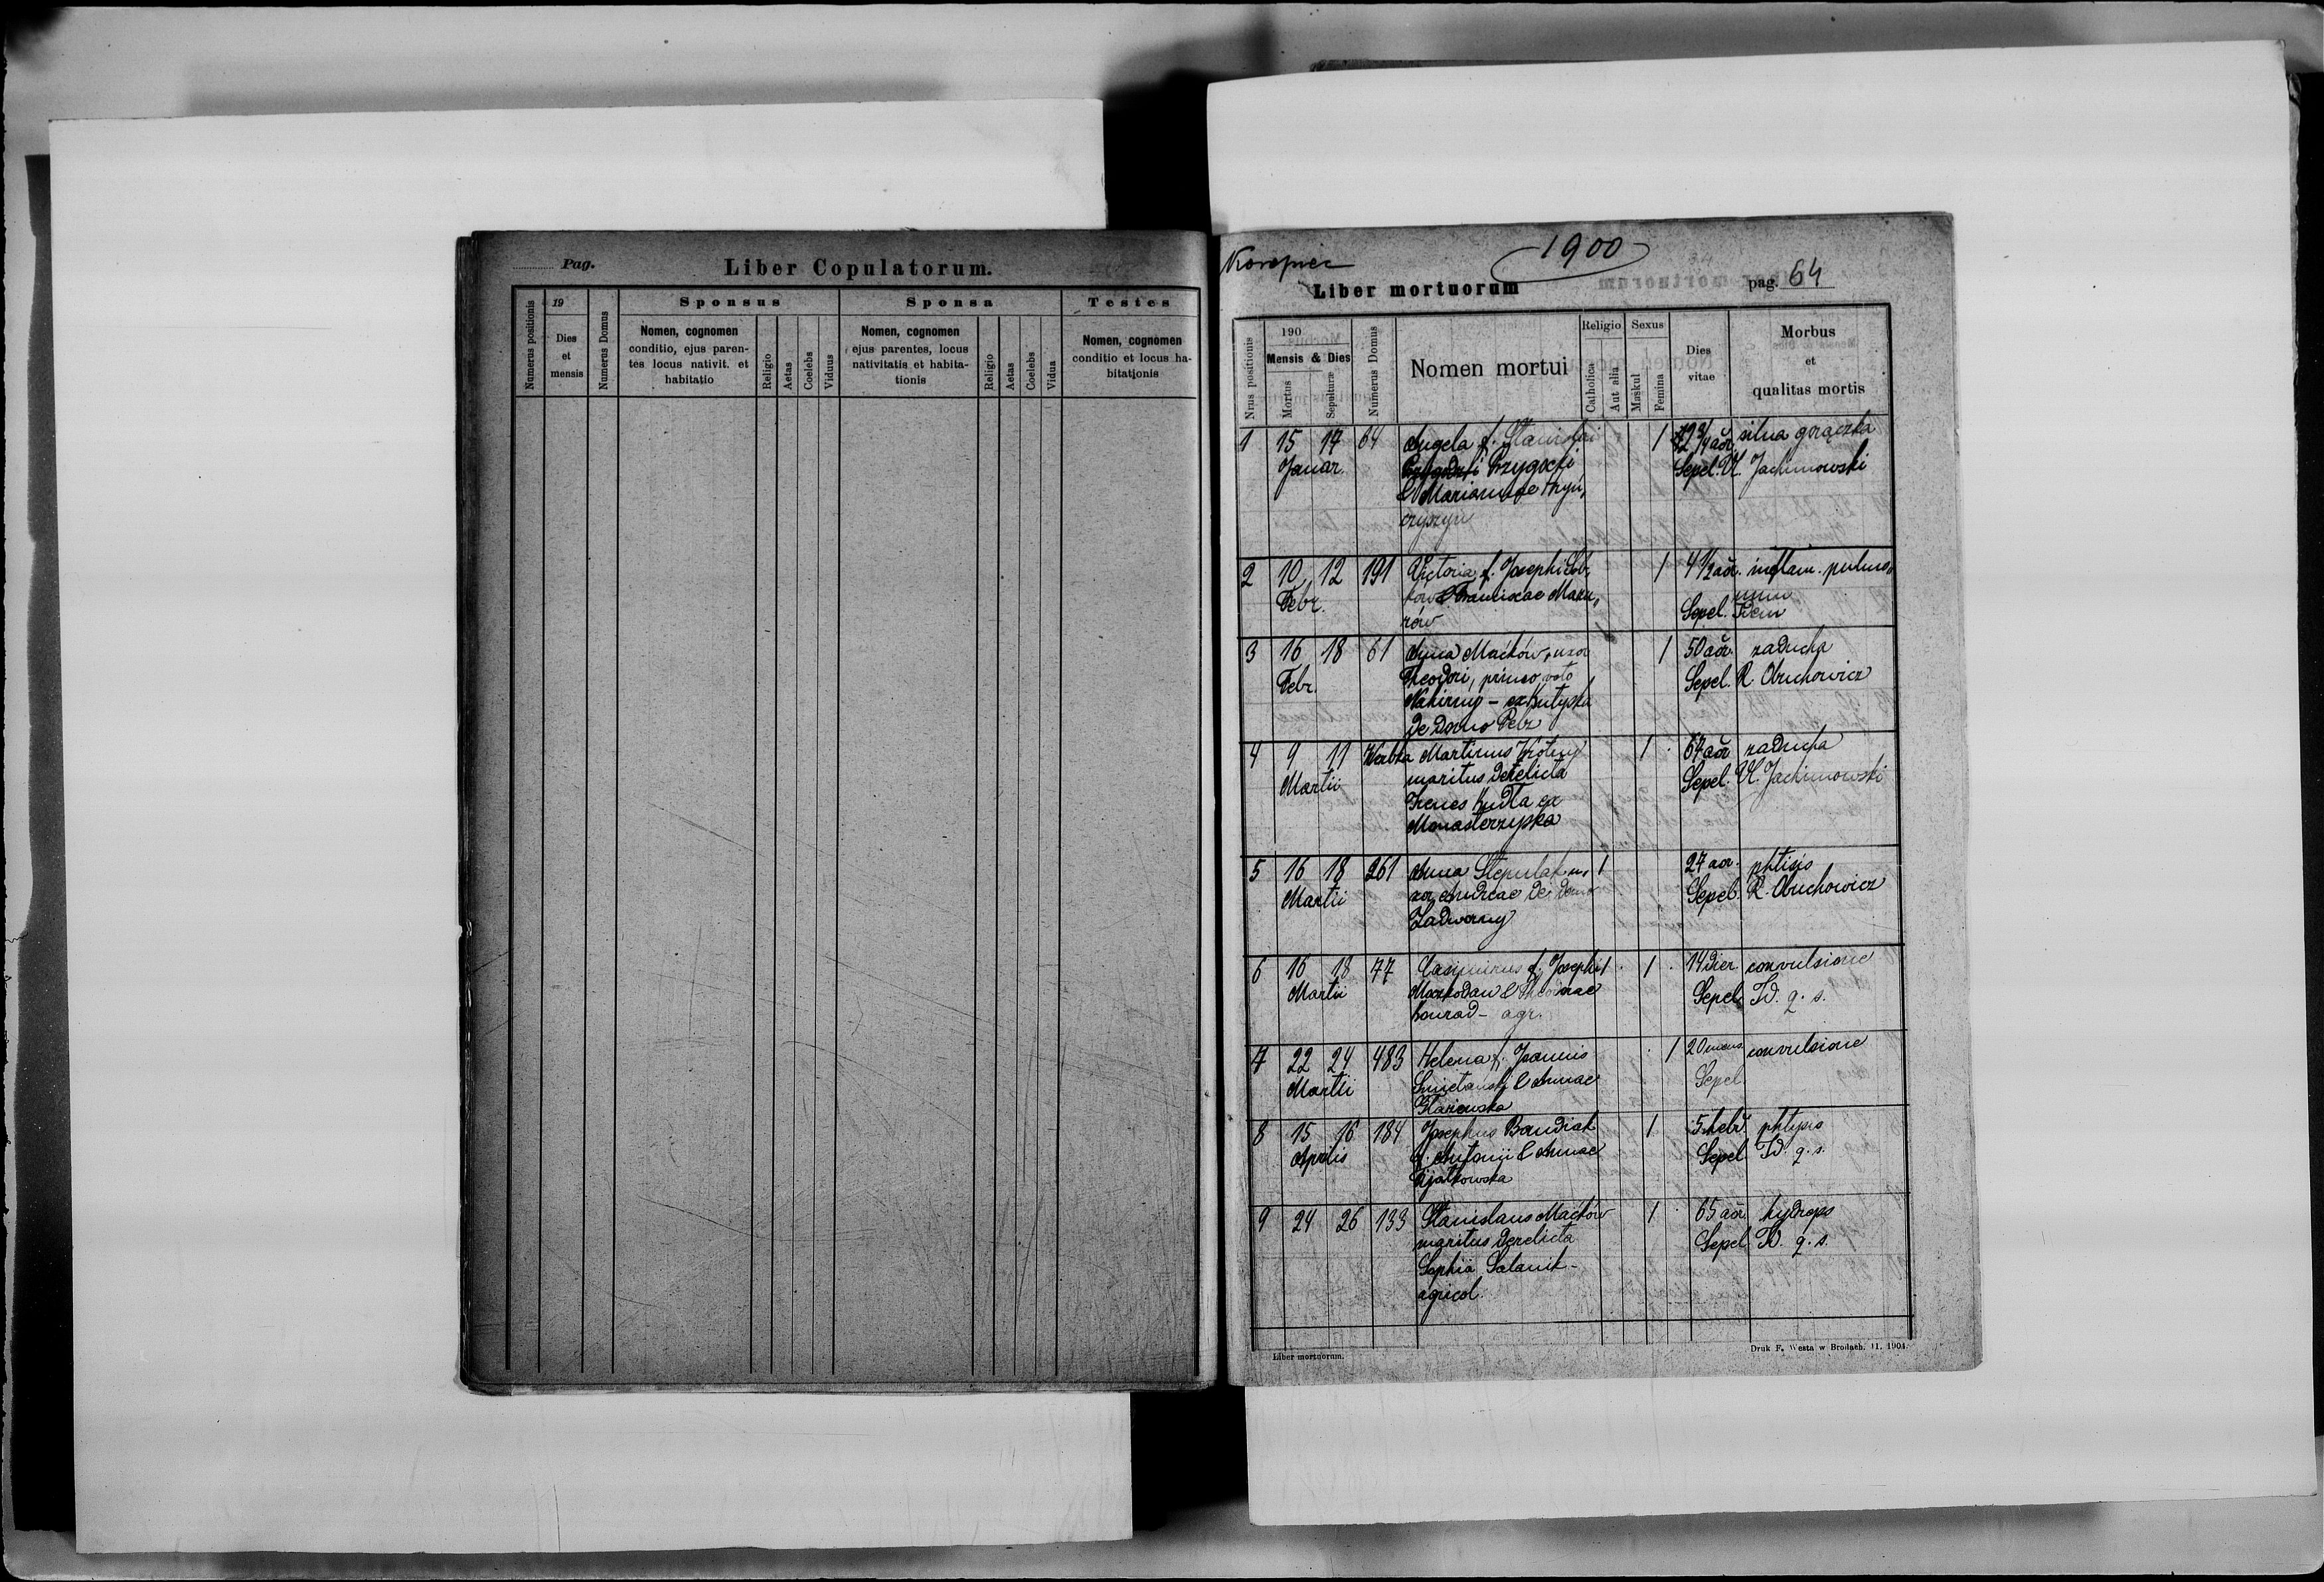 Pag.
Liber Copulatorum.
Numerus positionis
19
Dies
et
mensis
Numerus Domus
Sponsus
Nomen, cognomen
conditio, ejus paren-
tes locus nativit. et
habitatio
Religio
Aetas
Coelebs
Viduus
Sponsa
Nomen, cognomen
ejus parentes, locus
nativitatis et habita-
tionis
Religio
Aetas
Coelebs
Vidua
Testes
Nomen, cognomen
conditio et locus ha-
bitationis
1900
Liber mortuorum
pag. 64
Nrus positionis
190
Mensis & Dies
Mortus
Sepulturæ
Numerus Domus
Nomen mortui
Religio
Catholica
Aut alia
Sexus
Maskul
Femina
Dies
vitae
Morbus
et
qualitas mortis
1 15 17 64 Angela f. Stanislai 1 silna gorączka
Januar. Przygocki Sepel. Vl. Jachimowski
& Mariannae
2 10 12 191 Victoria f. Josephi 1 4 1/2 aor. inflam. pulmo,
Febr. & Franciscae Mazu, num
rów Sepel. Idem
3 16 18 61 Anna Maćków, uxor 1 50 aor. zaducha
Febr. Theodori, primo voto Sepel. R. Obuchowicz
Nahirny -
de domo Petr
4 9 11 Werbka Martinus 1 67 aor. zaducha
Martii maritus derelicta Sepel. Vl. Jachimowski
Irenes Kudła ex
Monasterzyska
5 16 18 261 Anna Stepulak u, 1 27 aor. phtisis
Martii xor Andreae de domo Sepel. R. Obuchowicz
Zadworny
6 16 18 77 Casimirus f. Josephi 1 1 14 dier. convulsione
Martii & Theodorae Sepel. Id. q. s.
Konrad - agr.
7 22 24 483 Helena f. Joannis 1 20 mens. convulsione
Martii Smietański & Annae Sepel.
8 15 16 184 Josephus Bandiak 1 5 hebd. phtysis
Aprilis f. Antonii & Annae Sepel. Id. q. s.
Kijatkowska
9 24 26 133 Stanislaus Maćków 1 65 aor. hydrops
maritus derelicta Sepel. Id. q. s.
Sophia Salanik -
agricol.
Liber mortuorum.
Druk F. Westa w Brodach. 11. 1904.